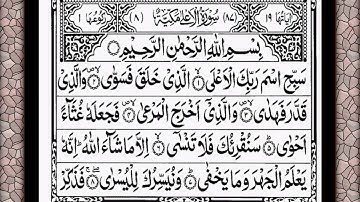 اٰیَاتُهَا ۱۹ (۸۷) سُوْرَةُ الْاَعْلٰى مَكِّیَّةٌ (۸) رُكُوْعُهَا ۱
بِسْمِ اللّٰهِ الرَّحْمٰنِ الرَّحِیْمِ
سَبِّحِ اسْمَ رَبِّكَ الْاَعْلَى ۝۱ الَّذِیْ خَلَقَ فَسَوّٰى ۝۲ وَالَّذِیْ
قَدَّرَ فَهَدٰى ۝۳ وَالَّذِیْۤ اَخْرَجَ الْمَرْعٰى ۝۴ فَجَعَلَهٗ غُثَآءً
اَحْوٰى ۝۵ سَنُقْرِئُكَ فَلَا تَنْسٰۤى ۝۶ اِلَّا مَا شَآءَ اللّٰهُ ؕ اِنَّهٗ
یَعْلَمُ الْجَهْرَ وَمَا یَخْفٰى ۝۷ وَنُیَسِّرُكَ لِلْیُسْرٰى ۝۸ فَذَكِّرْ